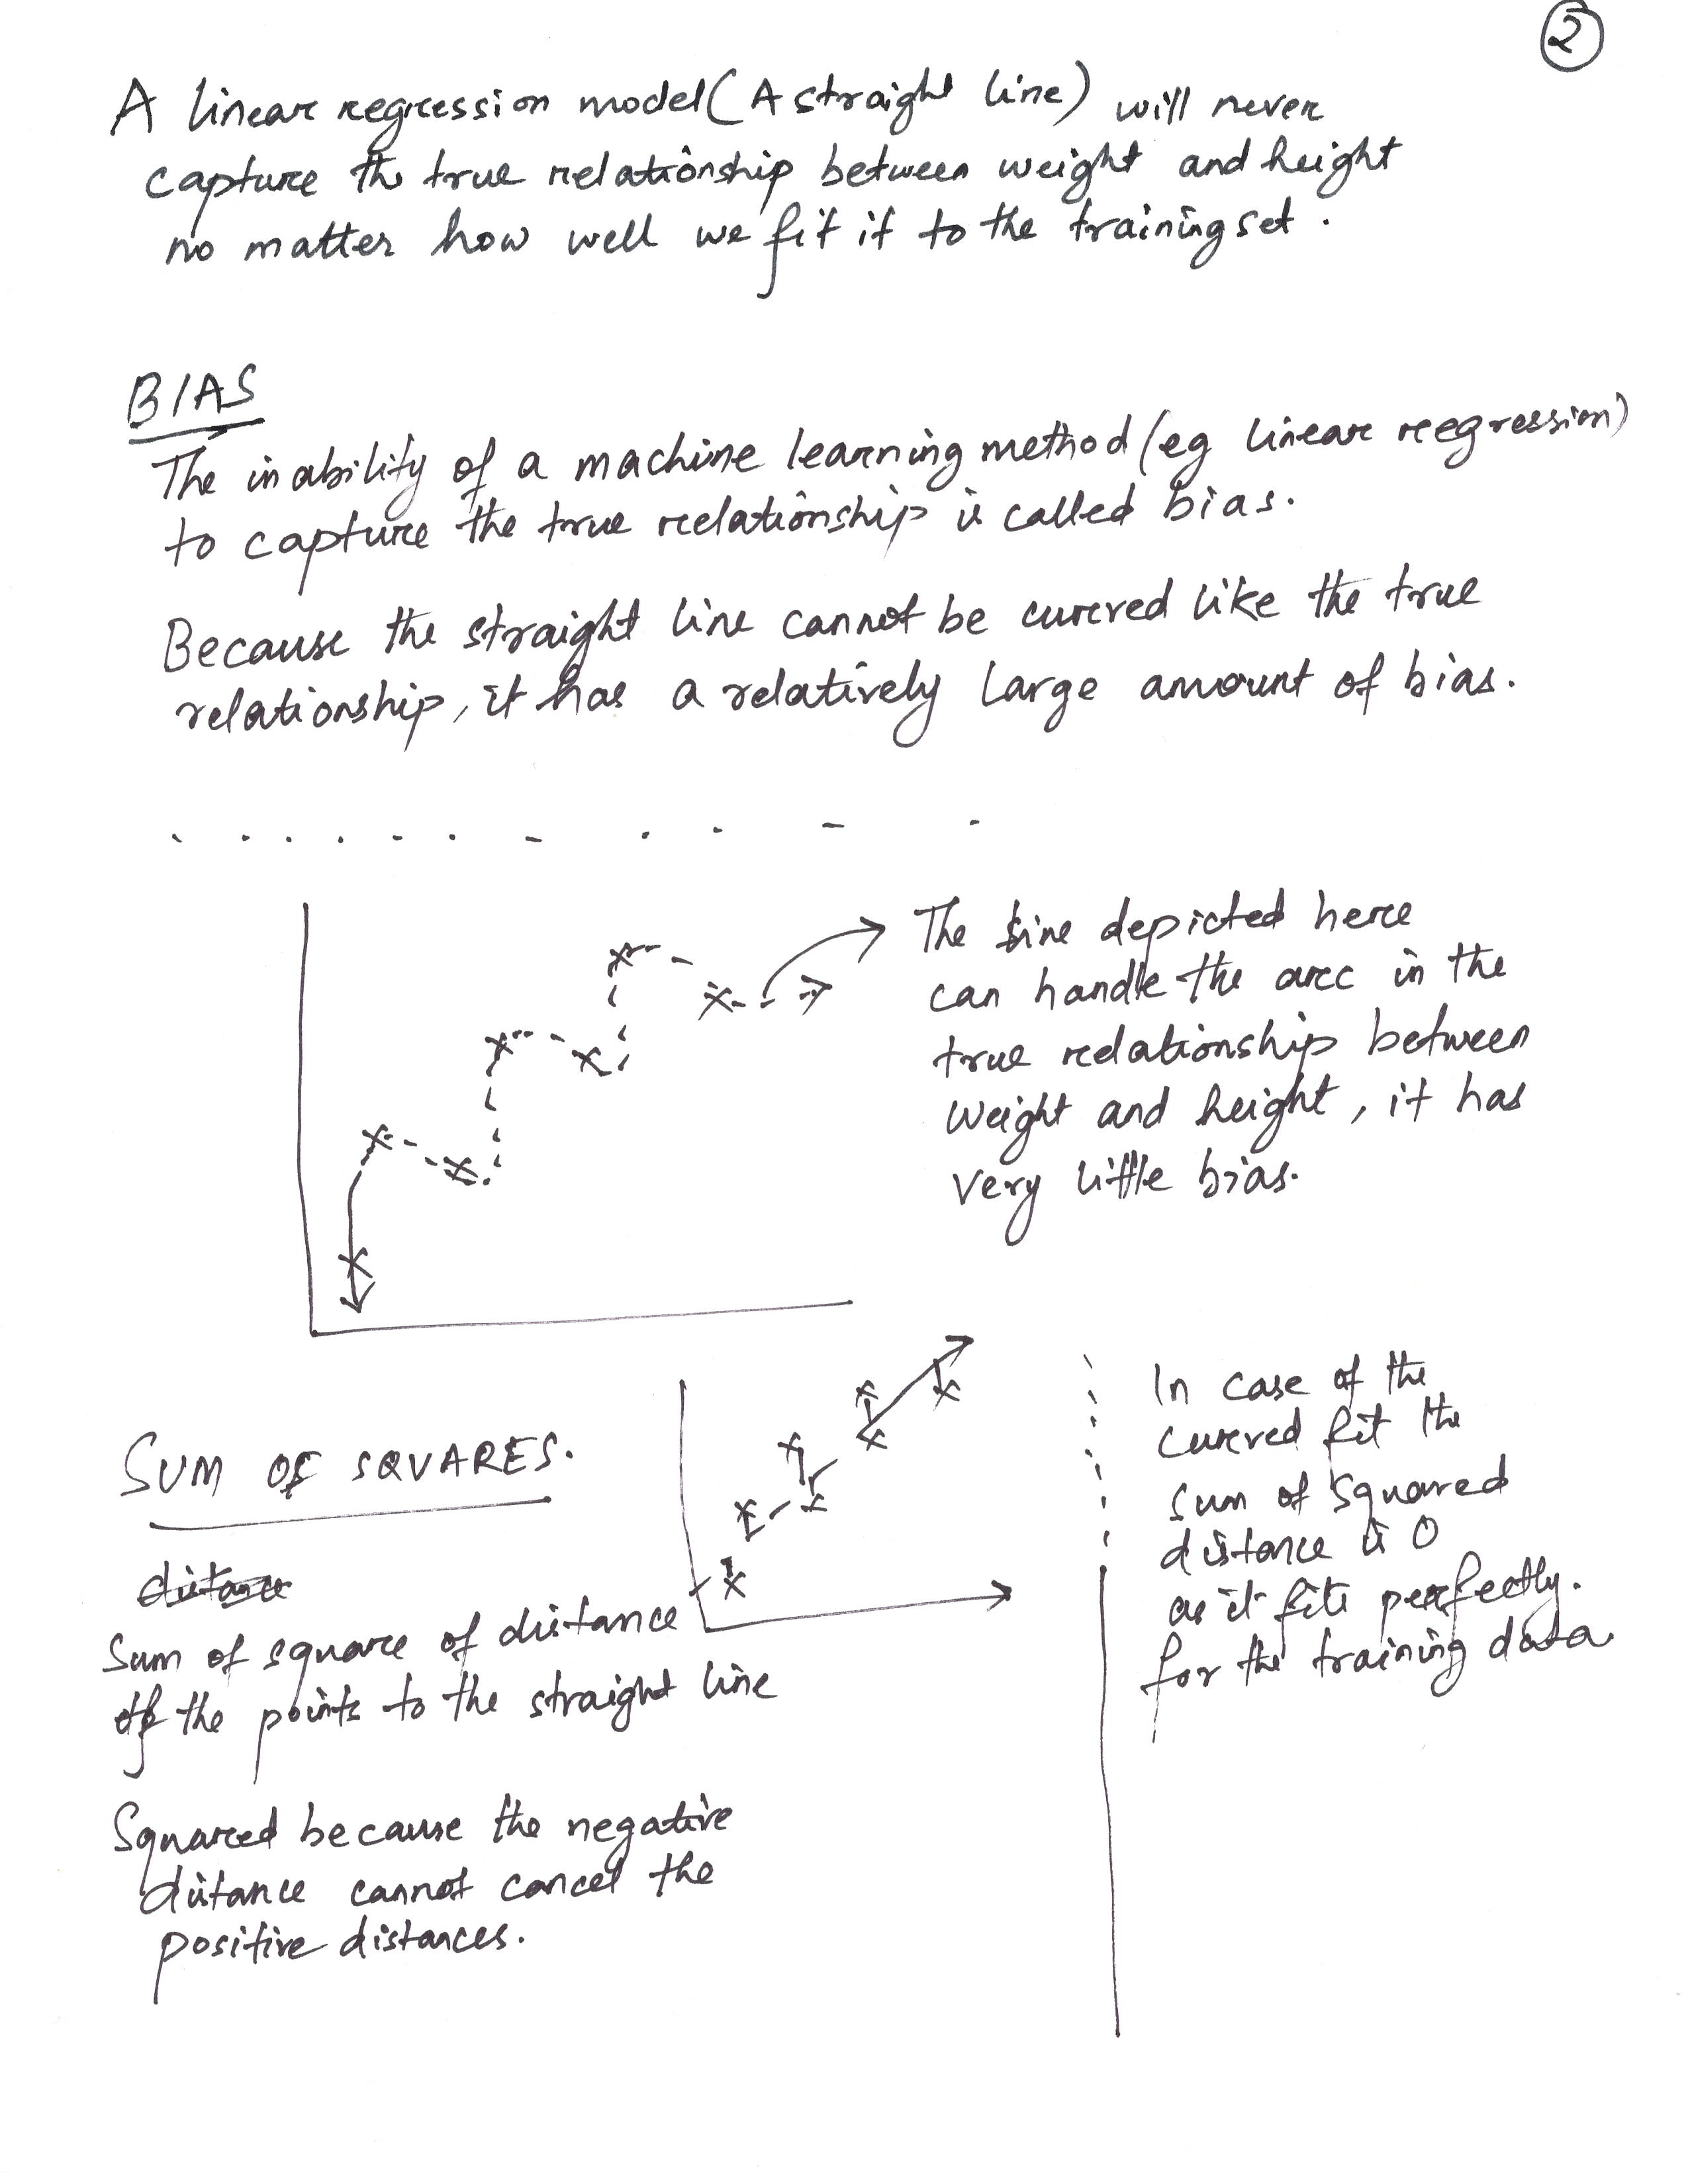 2
A linear regression model (A straight line) will never
capture the true relationship between weight and height
no matter how well we fit it to the training set.
BIAS
The inability of a machine learning method (eg linear reegression)
to capture the true relationship is called bias.
Because the straight line cannot be curved like the true
relationship, it has a relatively large amount of bias.
The line depicted here
can handle the arc in the
true relationship between
weight and height, it has
very little bias.
SUM OF SQUARES.
distance
Sum of square of distance
of the points to the straight line
Squared because the negative
distance cannot cancel the
positive distances.
In case of the
curved fit the
sum of squared
distance is 0
as it fits perfectly.
for the training data